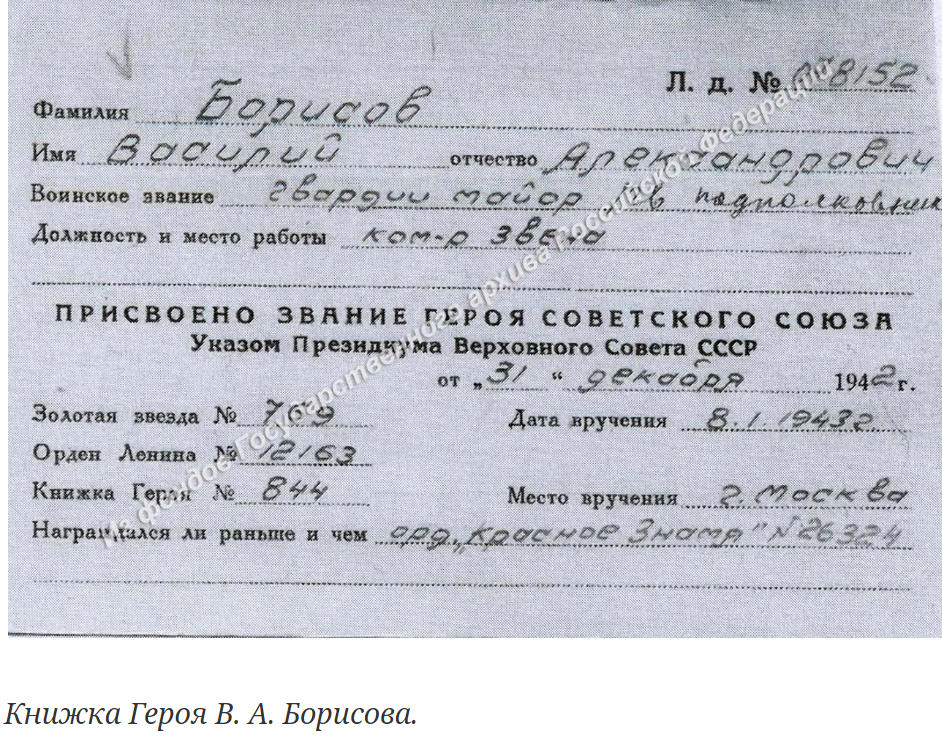 Л. д. № 078152
Фамилия Борисов
Имя Василий отчество Александрович
Воинское звание гвардии майор подполковник
Должность и место работы ком-р звена
ПРИСВОЕНО ЗВАНИЕ ГЕРОЯ СОВЕТСКОГО СОЮЗА
Указом Президиума Верховного Совета СССР
от „31“ декабря 1942 г.
Золотая звезда № 769 Дата вручения 8.1.1943г
Орден Ленина № 12163
Книжка Героя № 844 Место вручения г. Москва
Награждался ли раньше и чем орд. „Красное Знамя" № 26324
Из фондов Государственного архива Российской Федерации
Книжка Героя В. А. Борисова.